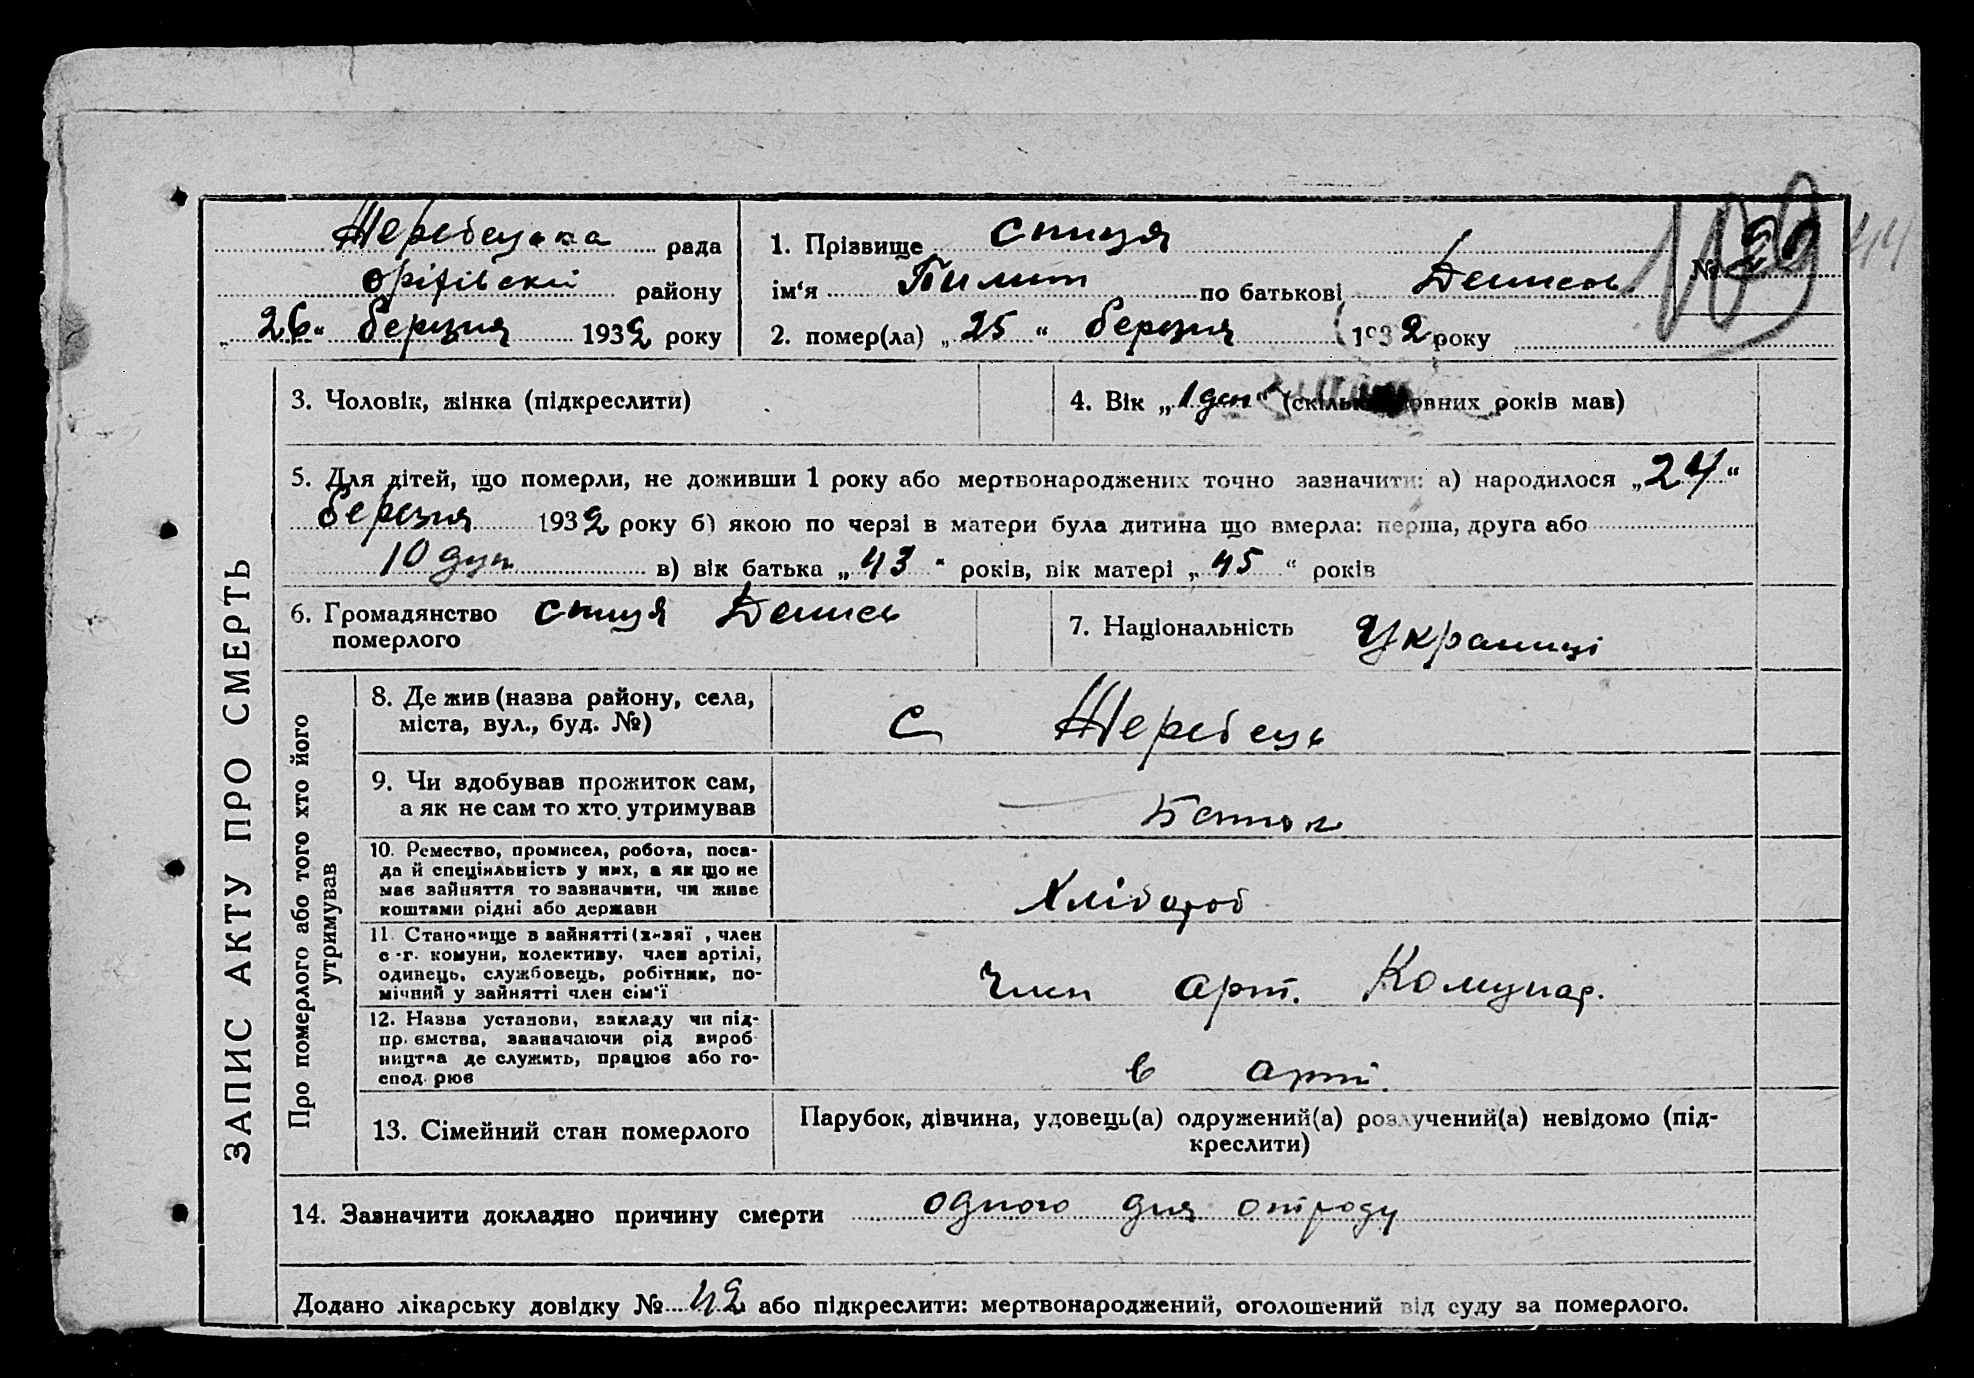 ЗАПИС АКТУ ПРО СМЕРТЬ
Жеребецька рада
оріхівский району
„26“ березня 1932 року
1. Прізвище спиця
ім‘я Пилип по батькові Денисов
№ 29 44
2. помер(ла) „25“ березня 1932 року
109
3. Чоловік, жінка (підкреслити)
4. Вік „1 ден“ (скільки повних років мав)
5. Для дітей, що померли, не доживши 1 року або мертвонароджених точно зазначити: а) народилося „24“
березня 1932 року б) якою по черзі в матери була дитина що вмерла: перша, друга або
10 в) вік батька „43“ років, вік матері „45“ років
6. Громадянство спиця Денис
померлого
7. Національність Украинці
Про померлого або того хто його
утримував
8. Де жив (назва району, села,
міста, вул., буд. №)
с Жеребець
9. Чи здобував прожиток сам,
а як не сам то хто утримував
Батько
10. Ремество, промисел, робота, поса-
да й спеціяльність у них, а як що не
має зайняття то зазначити, чи живе
коштами рідні або держави
Хлібороб
11. Становище в зайнятті (х-зяї , член
с -г. комуни, колективу, член артілі,
одинець, службовець, робітник, по-
мічний у зайнятті член сім‘ї
Член арт. Комунар.
12. Назва установи, закладу чи під-
пр. ємства, зазначаючи рід вироб
ництва де служить, працює або го-
спод. рює
в арт.
13. Сімейний стан померлого
Парубок, дівчина, удовець(а) одружений(а) розлучений(а) невідомо (під-
креслити)
14. Зазначити докладно причину смерти одного дня отроду
Додано лікарську довідку № 42 або підкреслити: мертвонароджений, оголошений від суду за померлого.